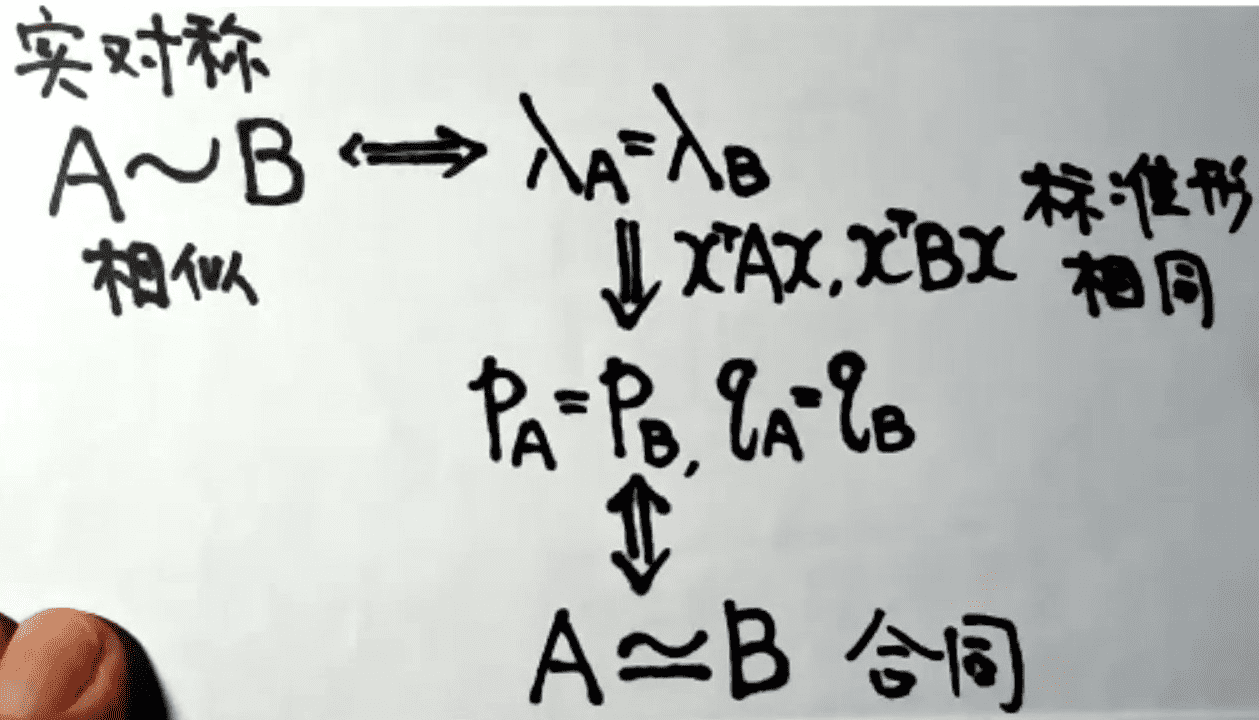 实对称
A~B ⟺ λA=λB
相似
⇓ xᵀAx, xᵀBx 标准形
相同
pA=pB, qA=qB
⇕
A≃B 合同